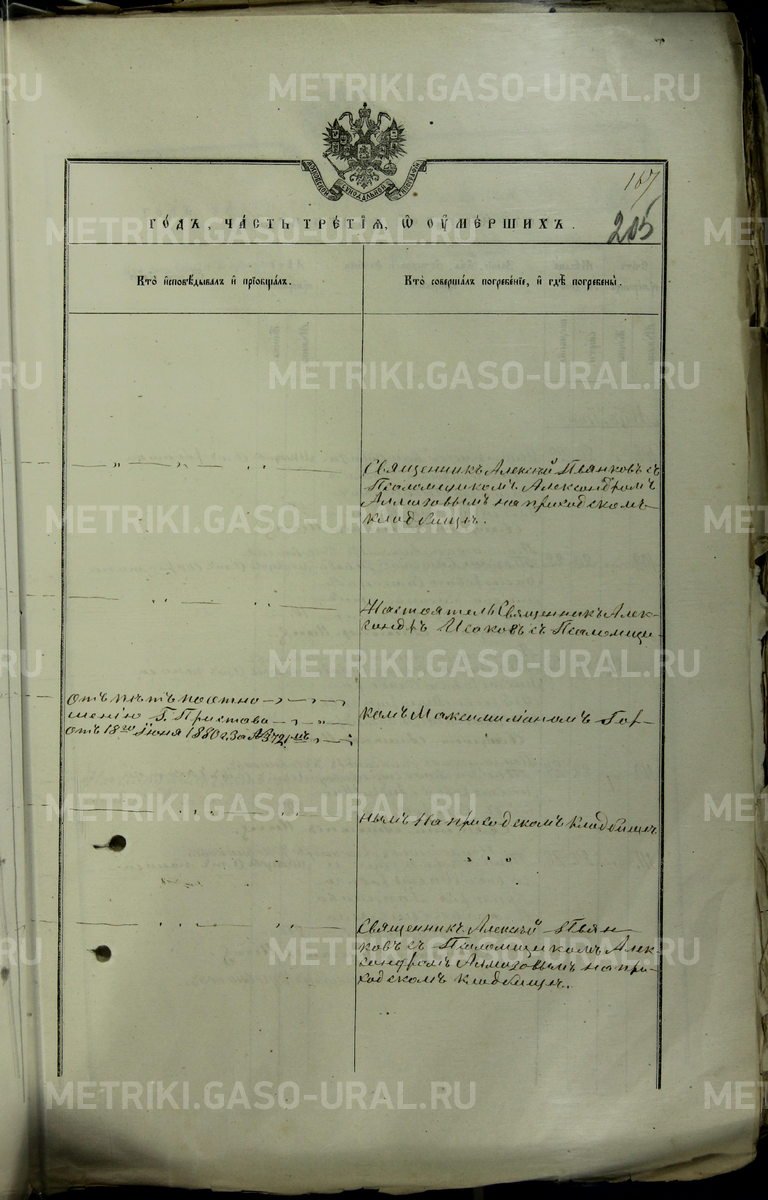 METRIKI.GASO-URAL.RU
167
205
го́дъ, ча́сть тре́тїѧ, ѡ҆ ᲂу҆ме́ршихъ.
Кто̀ и҆сповѣ́дывалъ и҆ прїобща́лъ.
Кто̀ соверша́лъ погребе́нїе, и҆ гдѣ̀ погребены̀.
Священникъ Алексѣй Пьянковъ съ
Псаломщикомъ Александромъ
Алмазовымъ на приходскомъ
кладбищѣ.
Настоятель Священникъ Алек-
сандръ Исаковъ съ Псаломщи-
отъ
шенію Г. Пристава
отъ 18го Іюня 1880 г. за №
комъ Максимиліаномъ Гор-
нымъ на приходскомъ кладбищѣ
Священникъ Алексѣй Пьян-
ковъ съ Псаломщикомъ Алек-
сандромъ Алмазовымъ на при-
ходскомъ кладбищѣ.